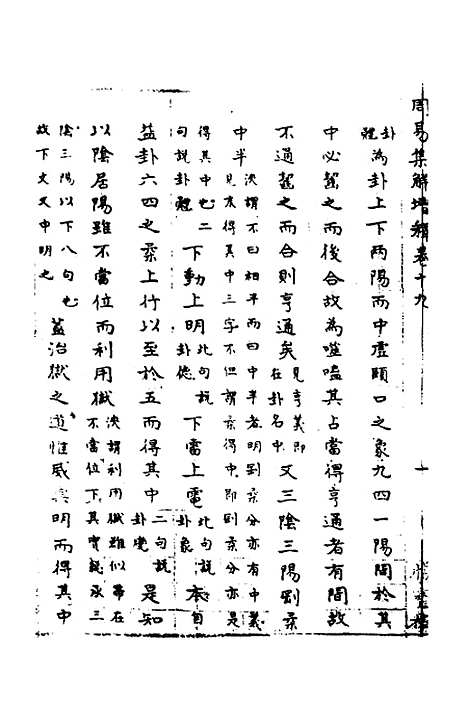 周易集解增釋卷十九
十
卦體為卦上下兩陽而中虛頤口之象九四一陽間於其
中必齧之而後合故為噬嗑其占當得亨通者有間故
不通齧之而合則亨通矣見亨義即在卦名中又三陰三陽剛柔
中半浹謂不曰相半而曰中半者明剛柔分亦有中義見末得其中三字不但謂柔得中即剛柔分亦是
得其中也二句說卦體下動上明此句說卦德下雷上電此句說卦象本自
益卦六四之柔上行以至於五而得其中二句說卦變是知
以陰居陽雖不當位而利用獄浹謂利用獄雖似帶在不當位下其實總承三
陰三陽以下八句也故下文又申明之蓋治獄之道惟威與明而得其中